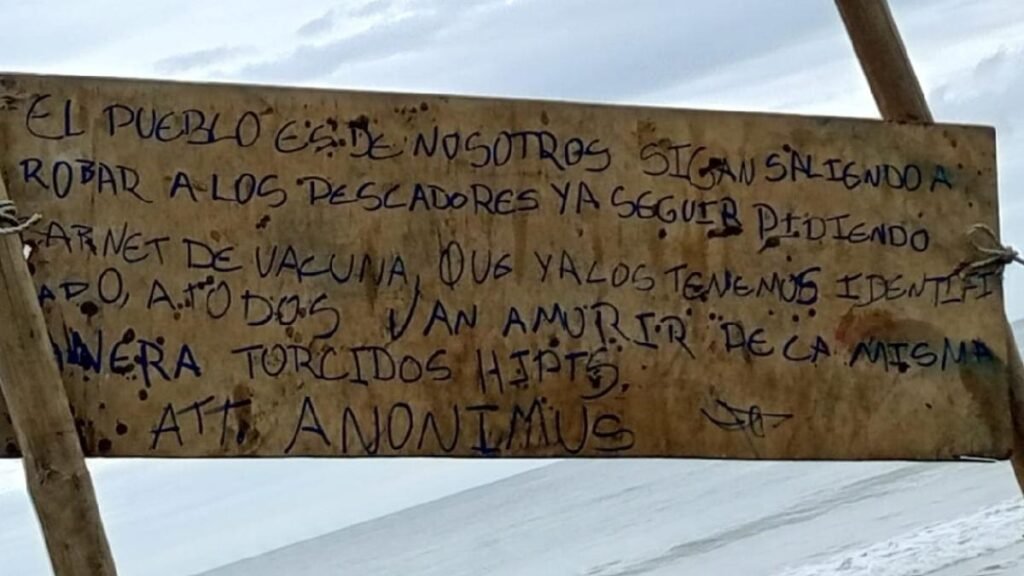 EL PUEBLO ES DE NOSOTROS SIGAN SALIENDO A
ROBAR A LOS PESCADORES Y A SEGUIR PIDIENDO
ARNET DE VACUNA, QUE YA LOS TENEMOS IDENTIFI
ADO, A TODOS VAN A MORIR DE LA MISMA
ANERA TORCIDOS HIPTS.
ATT. ANONIMUS